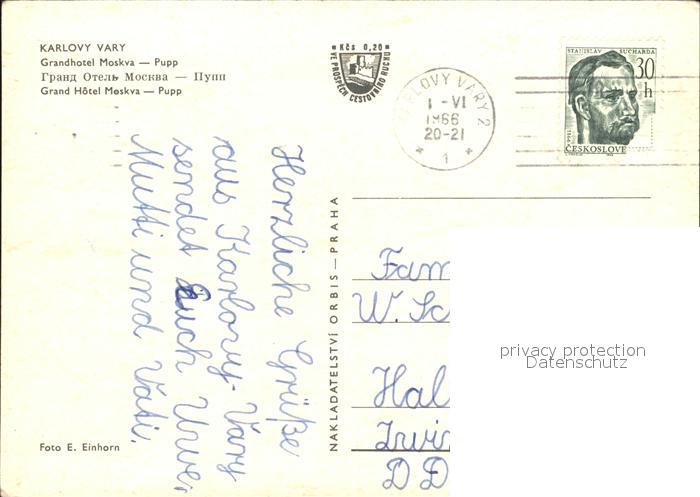 KARLOVY VARY
Grandhotel Moskva — Pupp
Гранд Отель Москва — Пупп
Grand Hôtel Moskva — Pupp
Kčs 0,20
VE PROSPĚCH CESTOVNÍHO RUCHU
KARLOVY VARY 2
1 -VI
1966
20-21
1
STANISLAV SUCHARDA
30
h
ČESKOSLOVE
Herzliche Grüße
aus Karlovy-Vary
sendet Euch Uwe,
Mutti und Vati.
NAKLADATELSTVÍ ORBIS — PRAHA
Fam
W. Sc
Hal
Irwi
DD
privacy protection
Datenschutz
Foto E. Einhorn